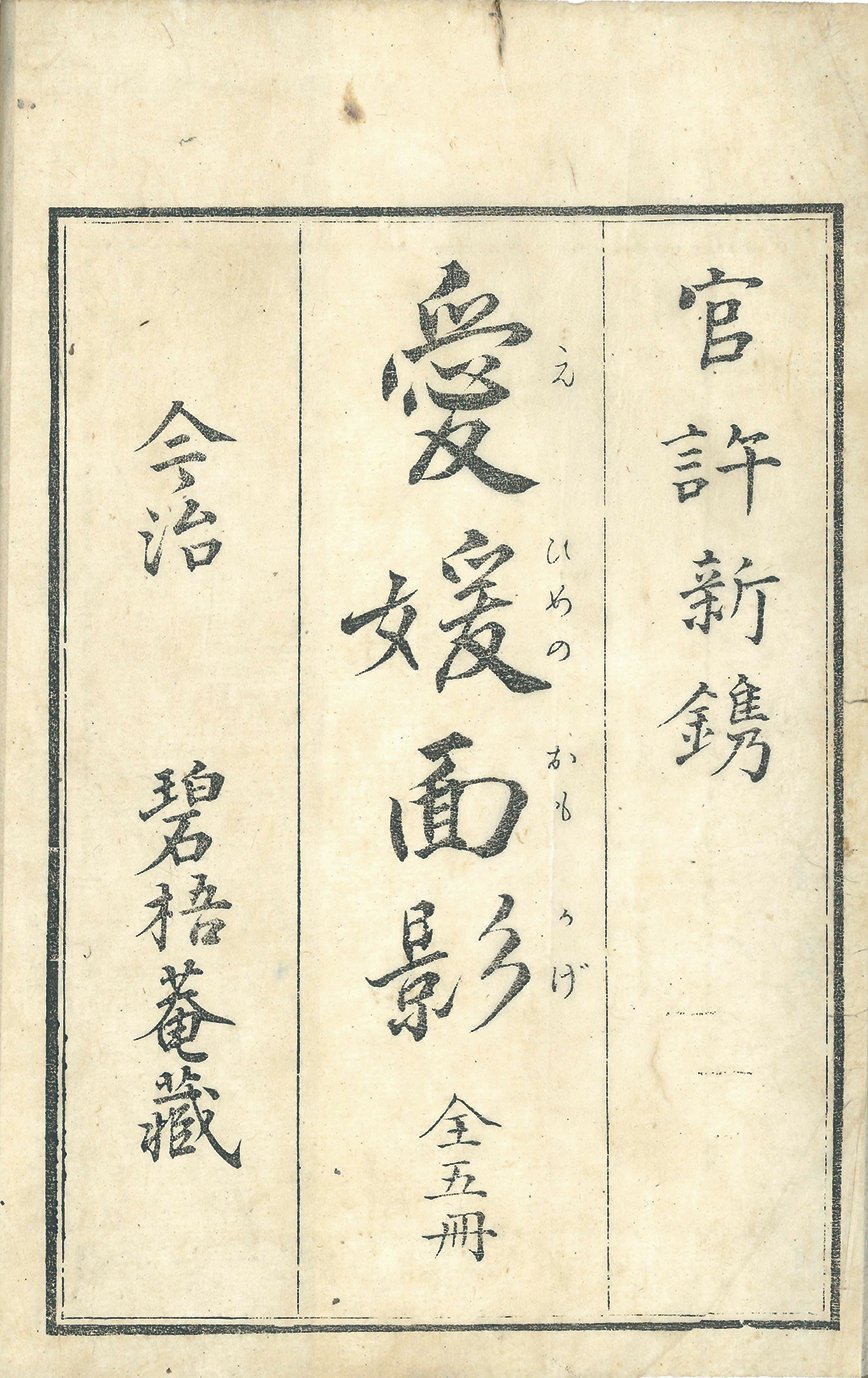 官許新鐫
愛媛面影 全五冊
え ひめの おも かげ
今治 碧梧菴藏